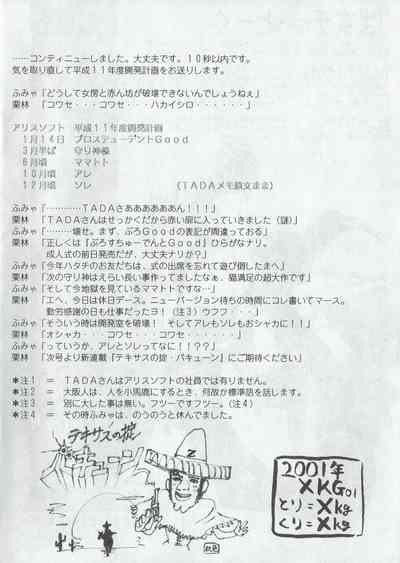 ……コンティニューしました。大丈夫です。１０秒以内です。
気を取り直して平成１１年度開発計画をお送りします。
ふみゃ「どうして女房と赤ん坊が破壊できないんでしょうねぇ」
栗林　「コワセ・・・コワセ・・・ハカイシロ・・・・・・」
アリスソフト　平成１１年度開発計画
１月１４日　プロステューデントＧｏｏｄ
３月半ば　守り神様
６月頃　ママトト
１０月頃　アレ
１２月頃　ソレ　（ＴＡＤＡメモ原文まま）
ふみゃ「…………ＴＡＤＡさああああああん！！！」
栗林　「ＴＡＤＡさんはせっかくだから赤い扉に入っていきました（謎）」
ふみゃ「……壊せ。まず、ぷろＧｏｏｄの表記が間違っておる」
栗林　「正しくは『ぷろすちゅーでんとＧｏｏｄ』ひらがなナリ。
成人式の前日発売だが、大丈夫ナリか？」
ふみゃ「今年ハタチのお友だちは、式の出席を忘れて遊び倒したまへ」
栗林　「次の守り神はえらい長い事作ってましたなぁ、猫満足の超大作です」
ふみゃ「そして今地獄を見ているママトトですな…」
栗林　「エヘ、今日は休日デース。ニューバージョン待ちの時間にコレ書いてマース。
勤労感謝の日も仕事だったヨ！（注３）ウフフ・・・」
ふみゃ「そういう時は開発室を破壊！　そしてアレもソレもおシャカに！！」
栗林　「オシャカ・・・コワセ・・・コワセ・・・・・・」
ふみゃ「っていうか、アレとソレってなに！！？？」
栗林　「次号より新連載『テキサスの掟・バキューン』にご期待ください」
＊注１　＝　ＴＡＤＡさんはアリスソフトの社員では有りません。
＊注２　＝　大阪人は、人を小馬鹿にするとき、何故か標準語を話します。
＊注３　＝　別に大した事は無い。フツーですフツー。（注４）
＊注４　＝　その時ふみゃは、のうのうと休んでました。
テキサスの掟
Z
2001年
XKG01
とり＝Xkg
くり＝Xkg